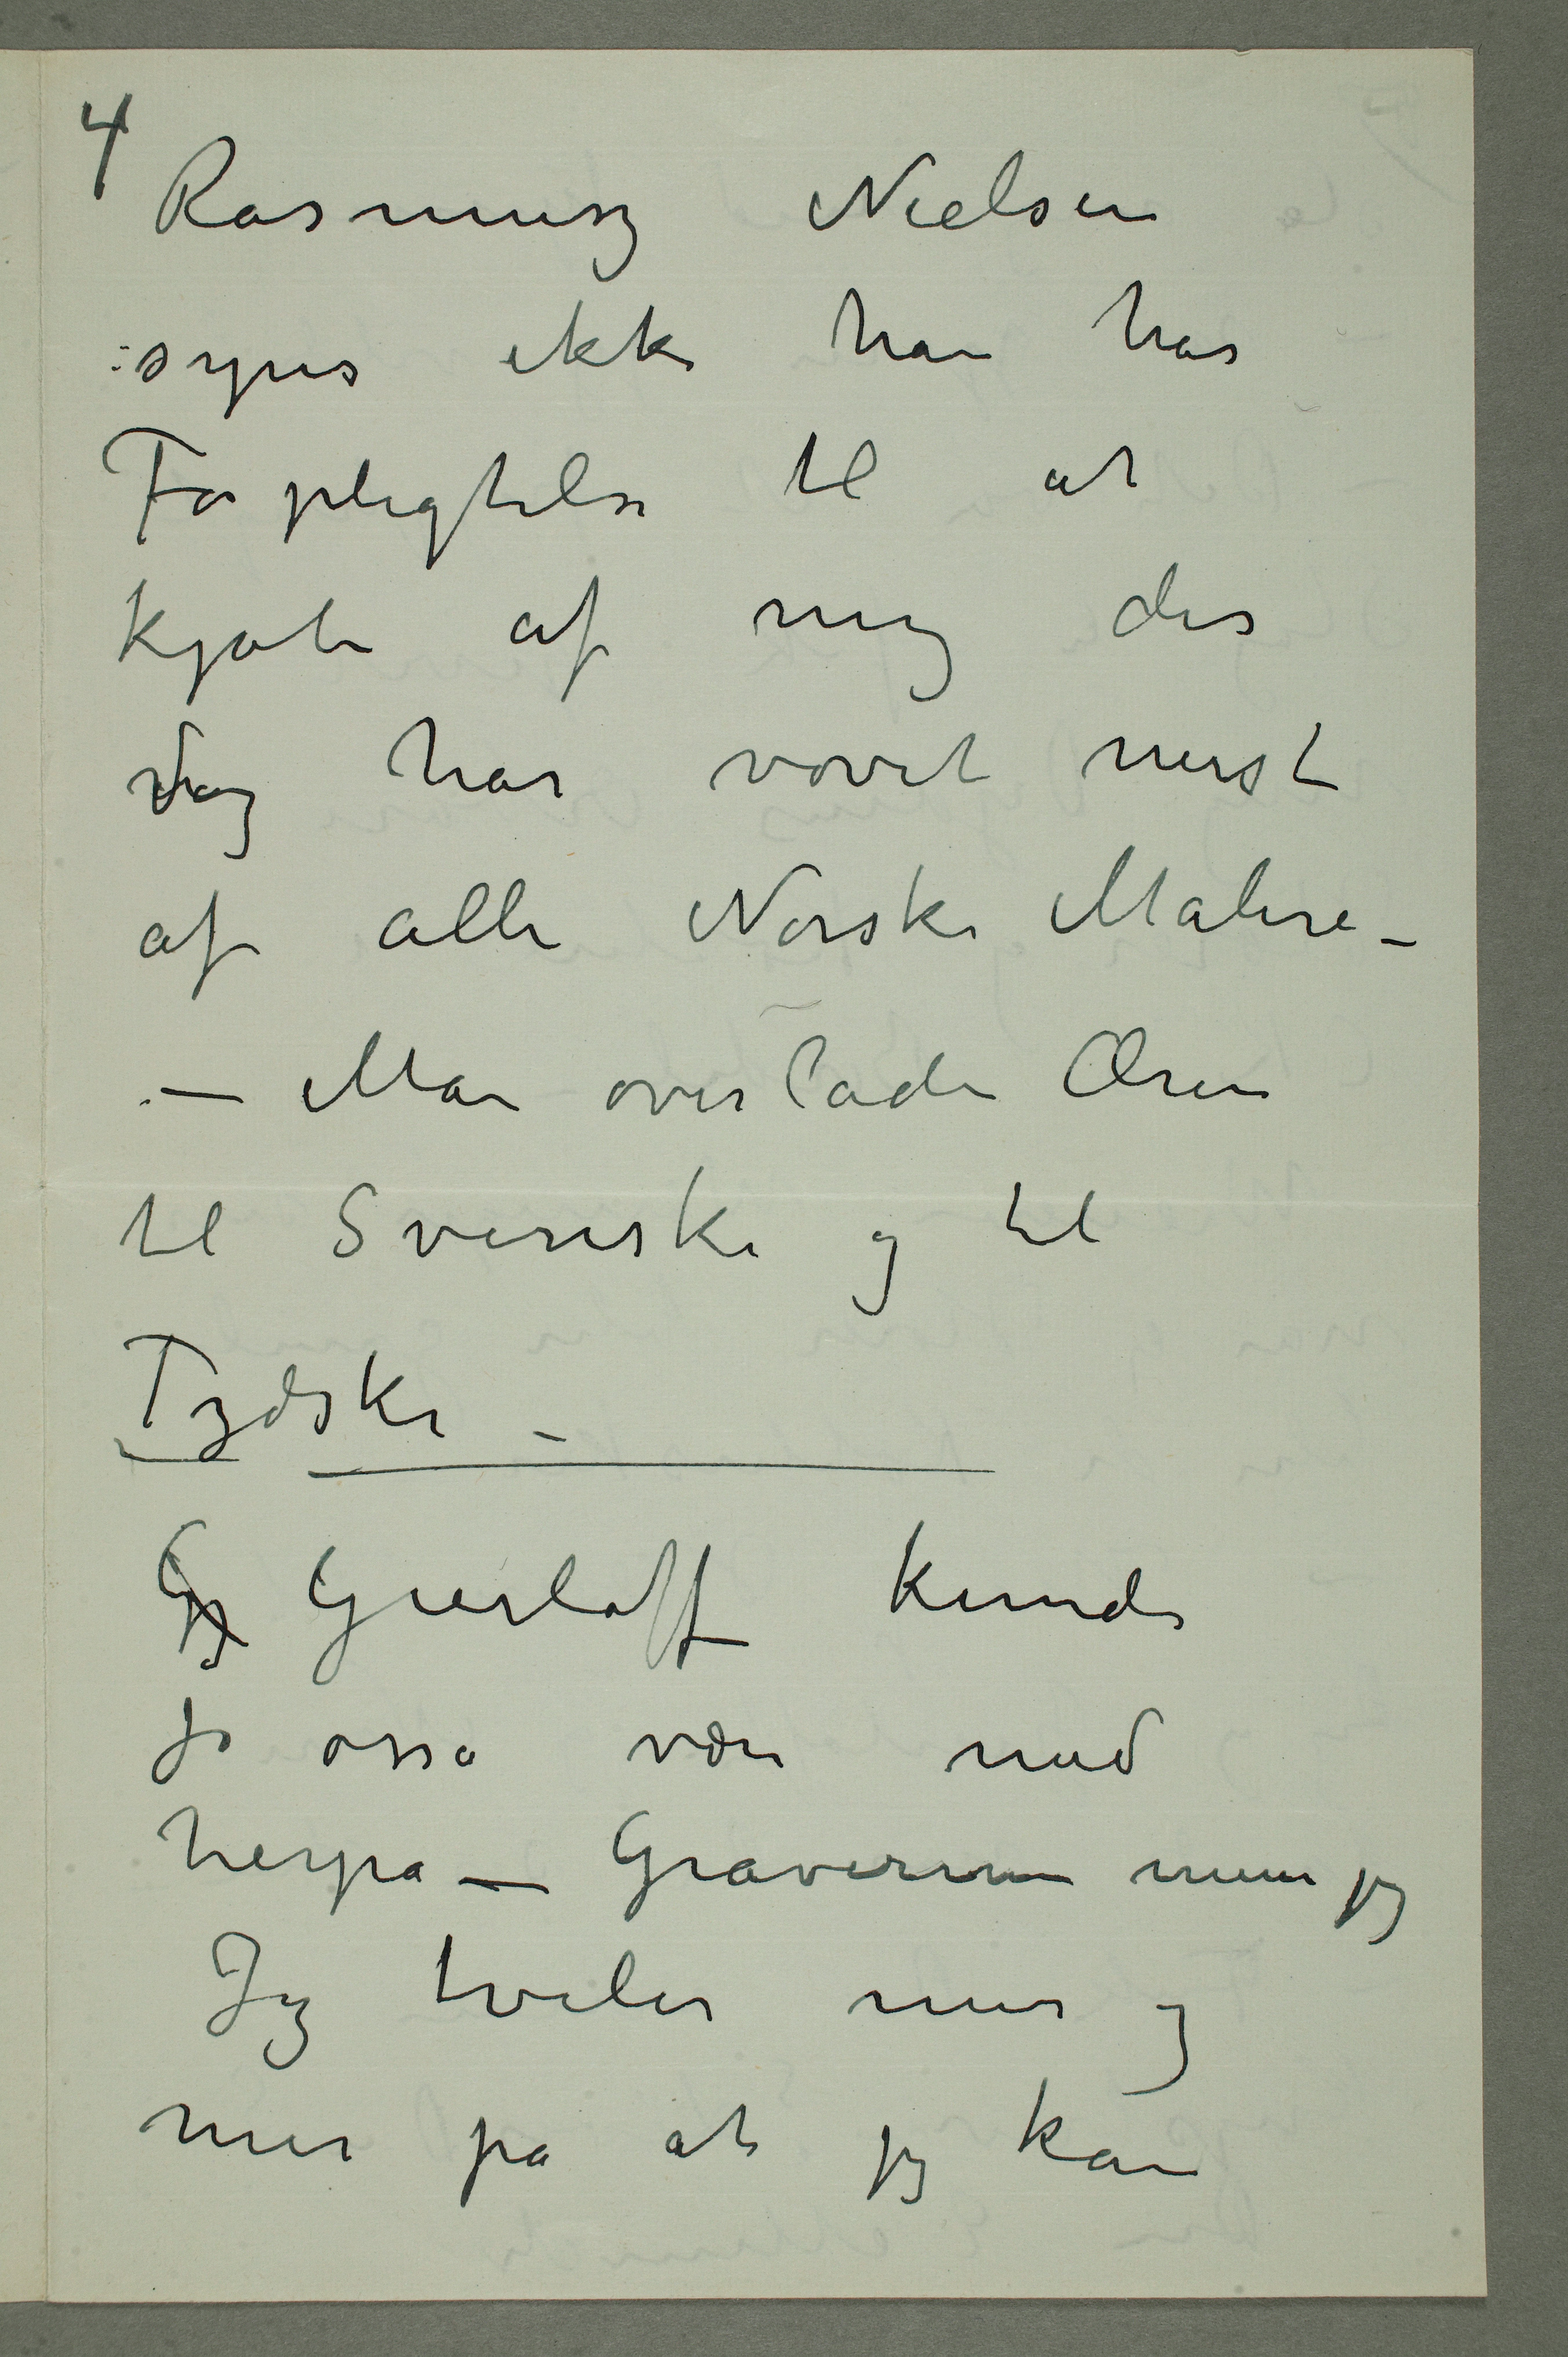 4
Rasmus Nielsen
synes ikke han har
Forpligtelse til at
kjøbe af mig der
har vovet mest
af alle Norske Malere –
– Man overlader Æren
til Svenske og til
Tydske –
Gierløff kunde
jo osså være med
herpå – Graverne mener jeg
Jeg tviler mer og
mer på at jeg kan